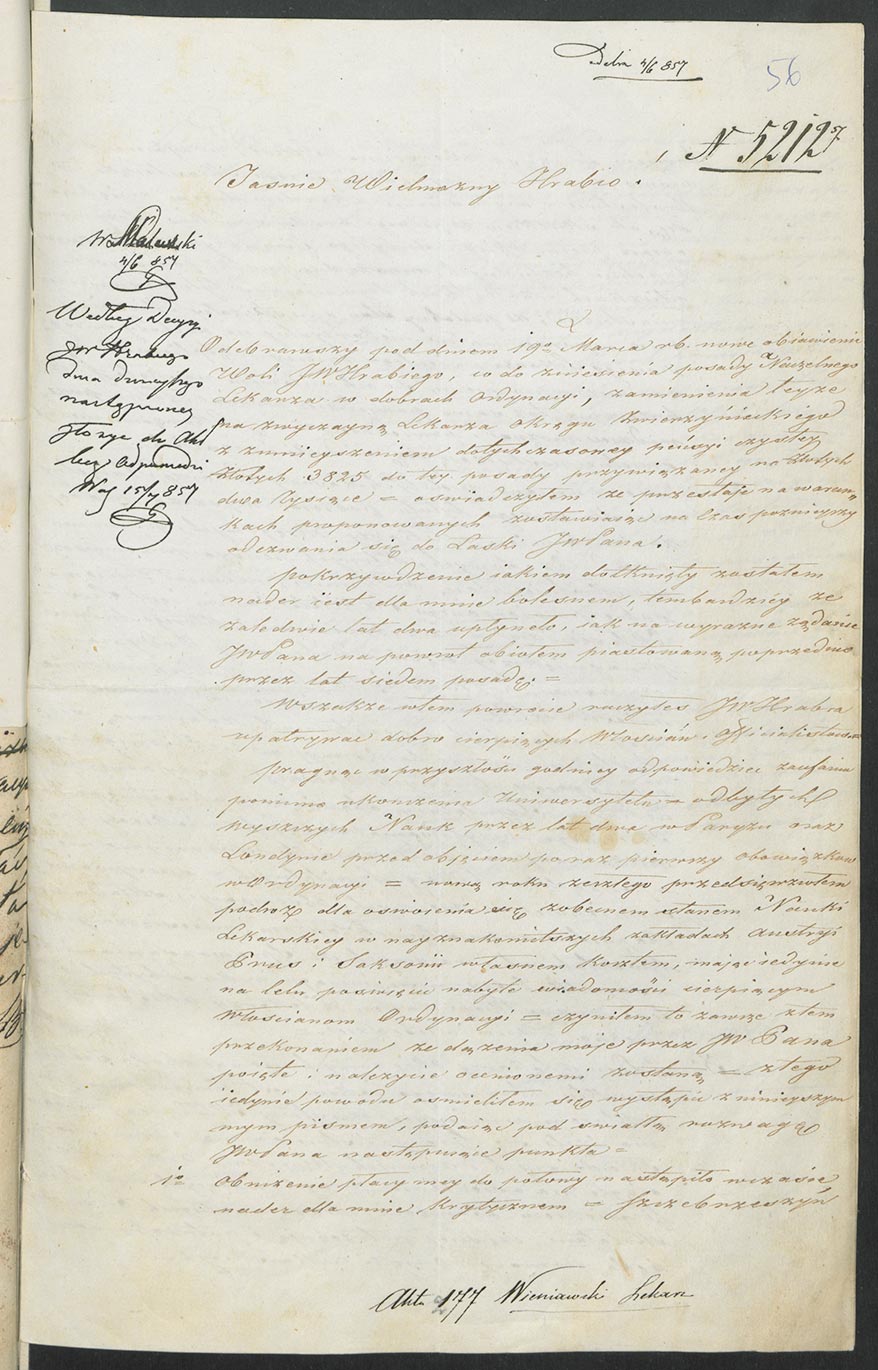 Delin 4/6 857
56
N 5212 57
Jasnie Wielmozny Hrabio !
W
4/6 857
Według Decyzyi
JW Hrabiego
dnia dzisieyszego
nastąpioney
złożyc do Akt
bez odpowiedzi
15/7 857
Odebrawszy pod dniem 19o Marca rb. nowe obiawienie
Woli JWHrabiego, co do zniesienia posady Naczelnego
Lekarza w dobrach Ordynacyi, zamienienia teyze
na zwyczayną Lekarza okręgu Zwierzynieckiego
z zmnieyszeniem dotychczasowey pensyi czystey
Złotych 3825 do tey posady przywiązaney na Złotych
dwa Tysiące = oswiadczyłem ze przestaję na warun
kach proponowanych zostawiaiąc na Czas poznieyszy
odezwania się do Łaski JWPana.
Pokrzywdzenie iakiem dotknięty zostałem
nader iest dla mnie bolesnem, tembardziey ze
zaledwie lat dwa upłyneło, iak na wyrazne ządanie
JWPana na powrot obiołem piastowaną poprzednio
przez lat siedem posadę. =
Wszakze wtem powrocie raczyłes JWHrabia
upatrywac dobro cierpiących Włoscian i Officialistow =
Pragnąc w przyszłosci godniey odpowiedziec zaufaniu
pomimo ukonczenia Uniwersytetu = odbytych
wyszszych Nauk przez lat dwa w Paryzu oraz
Londynie przed obięciem po raz pierwszy obowiązkow
w Ordynacyi = nową roku zeszłego przedsięwziołem
podroz dla oswoienia się z obecnem stanem Nauki
Lekarskiey w nayznakomitszych zakładach Austryi
Prus i Saksonii własnem kosztem, maiąc iedynie
na celu poswięcic nabyte wiadomosci cierpiącym
Włoscianom Ordynacyi = czyniłem to zawsze z tem
przekonaniem ze dązenia moje przez JWPana
poięte i nalezycie ocenionemi zostaną = z tego
iedynie powodu osmieliłem się wystąpic z ninieyszym
mym pismem, podaiąc pod swiatłą rozwagę
JWPana następuiące punkta =
1o Obnizenie płacy mey do połowy nastąpiło w czasie
nader dla mnie Krytycznem = Szczebrzeszyn
Akta 177 Wieniawski Lekarz